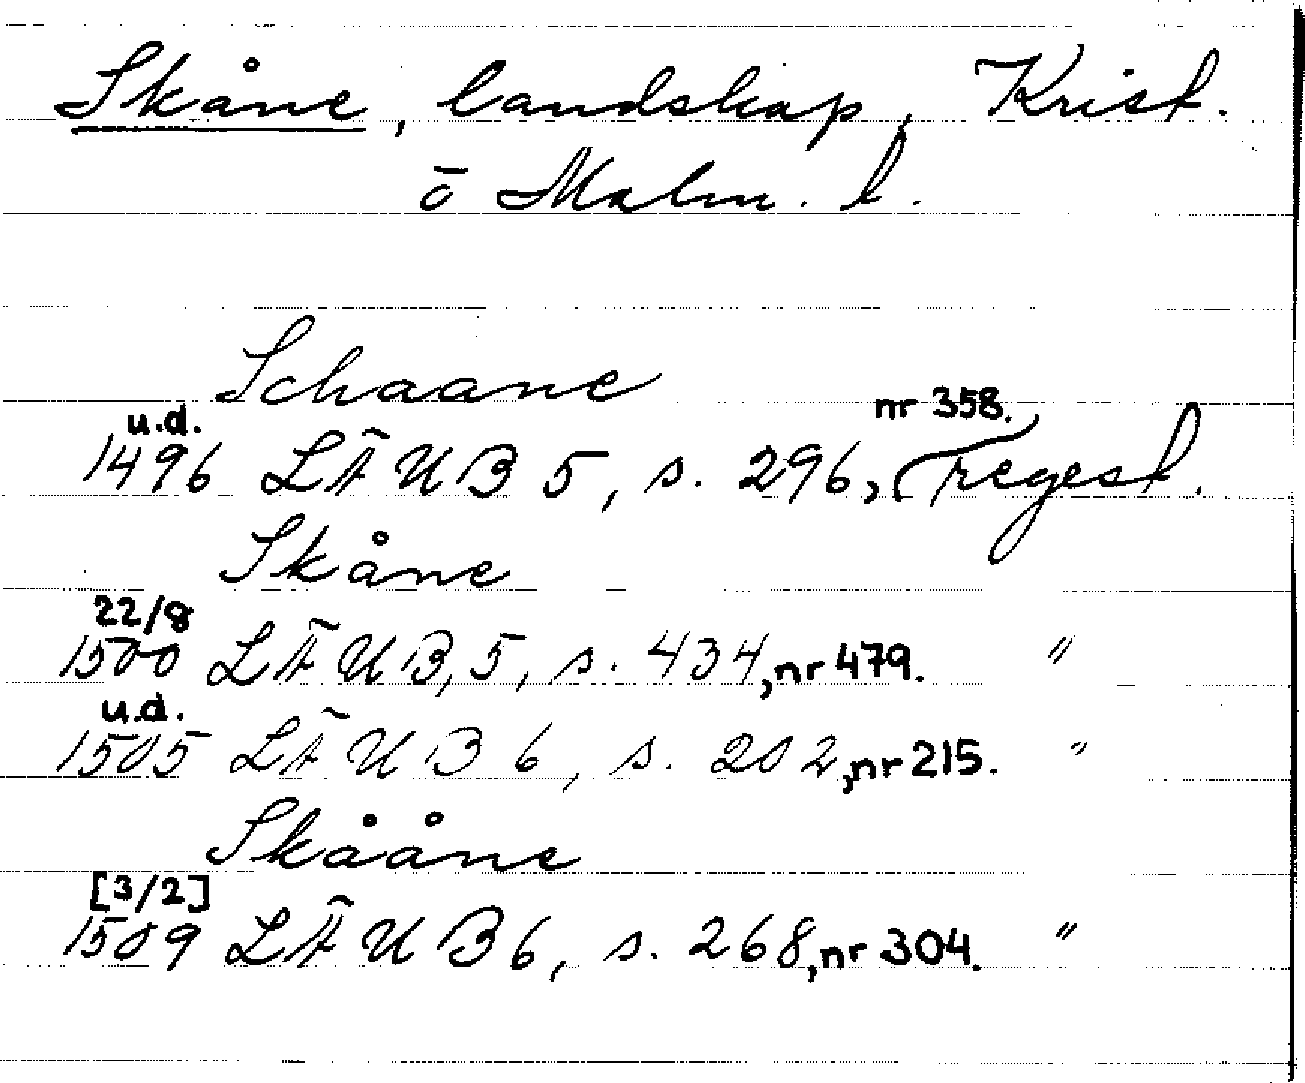 Skåne, landskap, Krist.
ō Malm. l.
Schaane
u.d. nr 358.
1496 LÄUB 5, s. 296, regest.
Skåne
22/8
1500 LÄUB, 5, s. 434, nr 479. "
u.d.
1505 LÄUB 6, s. 202, nr 215. "
Skååne
[3/2]
1509 LÄUB 6, s. 268, nr 304. "